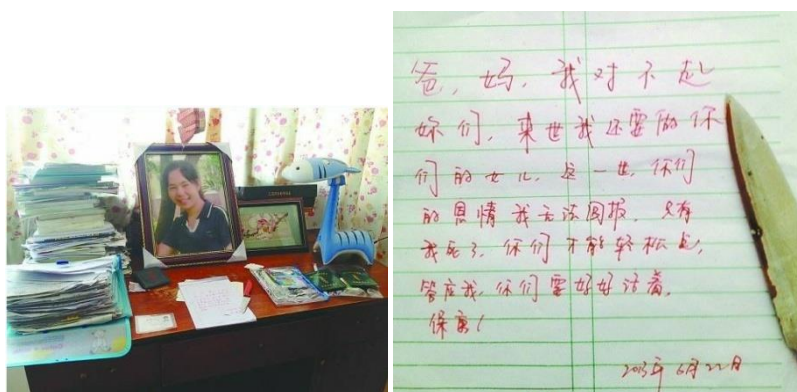 爸,妈,我对不起
你们,来世我还要做你
们的女儿,这一世,你们
的恩情我无法回报,只有
我死了,你们才能轻松点,
答应我,你们要好好活着,
保重!
6月22日